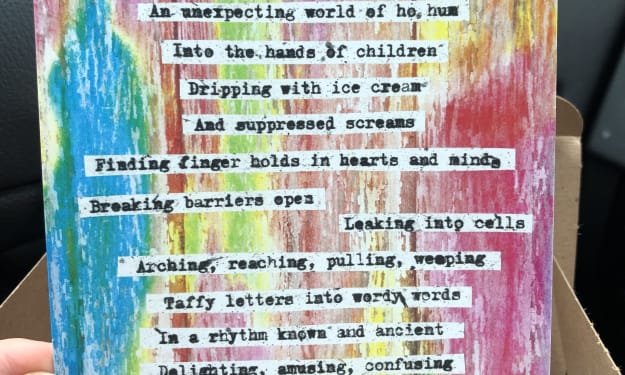 An unexpecting world of ho, hum
Into the hands of children
Dripping with ice cream
And suppressed screams
Finding finger holds in hearts and minds
Breaking barriers open
Leaking into cells
Arching, reaching, pulling, weeping
Taffy letters into wordy words
In a rhythm known and ancient
Delighting, amusing, confusing